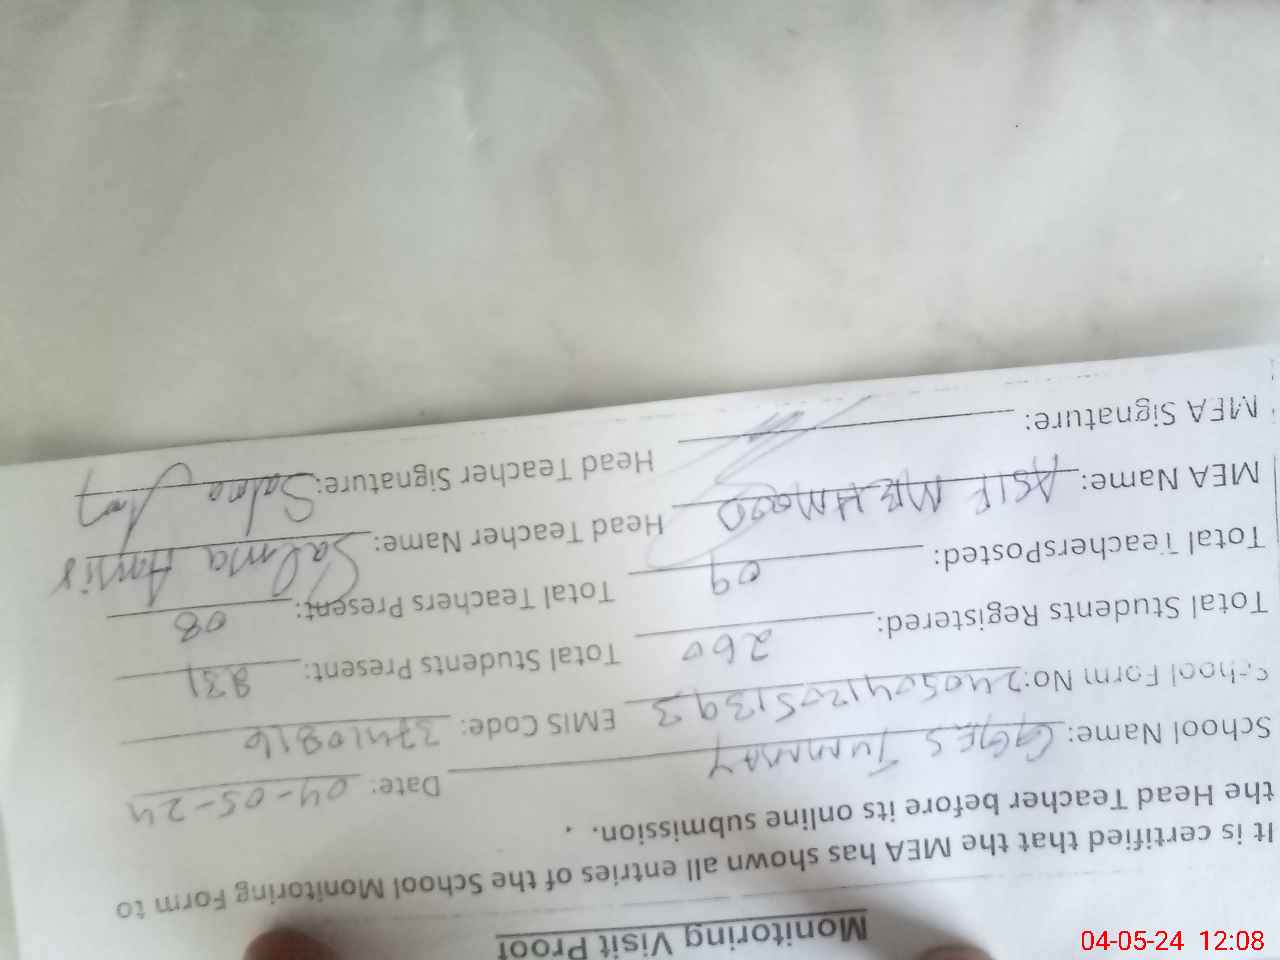 Monitoring Visit Proof
It is certified that the MEA has shown all entries of the School Monitoring Form to
the Head Teacher before its online submission. .
School Name: GGES Tummay Date: 04-05-24
School Form No: 24050412051393 EMIS Code: 37410816
Total Students Registered: 260 Total Students Present: 231
Total TeachersPosted: 09 Total Teachers Present: 08
MEA Name: ASIF MEHMOOD Head Teacher Name: Salma Amis
MEA Signature: Head Teacher Signature: Salma
04-05-24 12:08